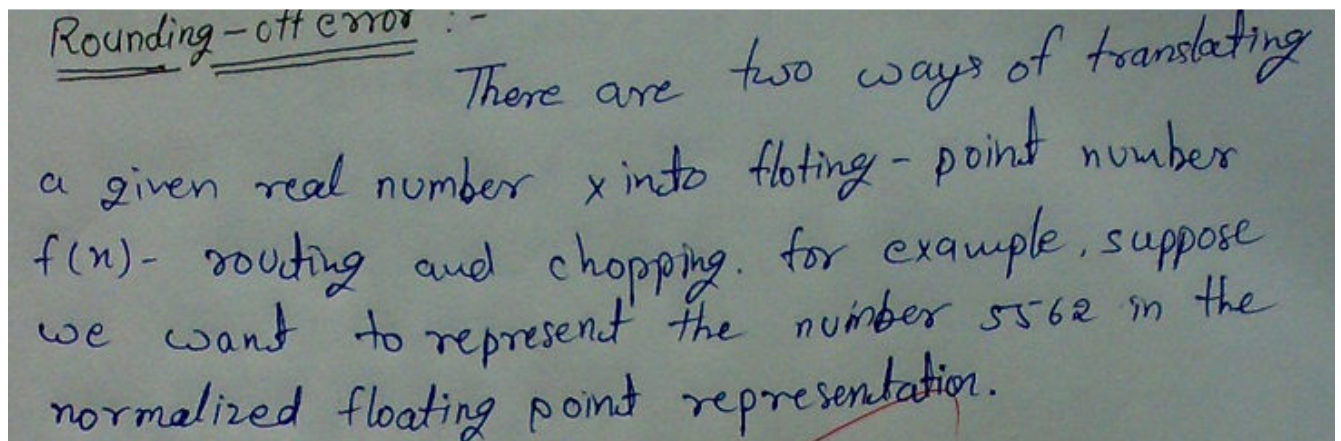 Rounding-off error :-
There are two ways of translating
a given real number x into floting-point number
f(x)- rouding and chopping. for example, suppose
we want to represent the number 5562 in the
normalized floating point representation.